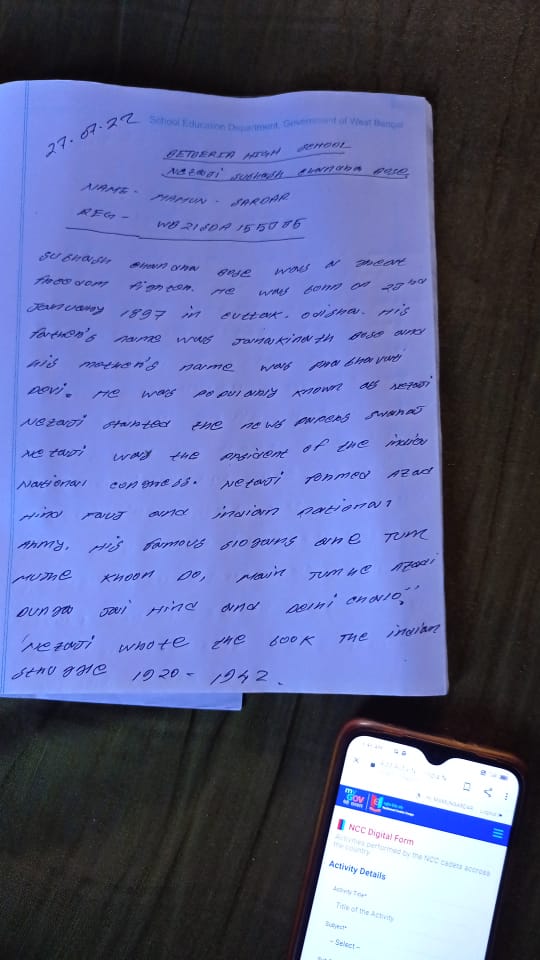 27.07.22
School Education Department, Government of West Bengal
BETBERIA HIGH SCHOOL
NEZAJI SUBHASH CHANDRA BOSE
NAME- MAMUN - SARDAR
REG -
SUBHASH CHANDRA BOSE WAS A GREAT
FREEDOM FIGHTER. HE WAS BORN ON 23rd
JANUARY 1897 IN CUTTAK. ODISHA. HIS
FATHER'S NAME WAS JANAKINATH BOSE AND
HIS MOTHER'S NAME WAS PRABHAVATI
DEVI. HE WAS POPULARLY KNOWN AS NEZAJI
NEZAJI STARTED THE NEWS PAPERS SWARAJ
NETAJI WAS THE PRSIDENT OF THE INDIAN
NATIONAL CONGRESS. NETAJI FORMED AZAD
HIND FAUJ AND INDIAN NATIONAL
ARMY. HIS FAMOUS SLOGANS ARE TUM
MUJHE KHOON DO, MAIN TUMHE AZADI
DUNGA JAI HIND AND DELHI CHALO."
'NEZAJI WROTE THE BOOK THE INDIAN
STRUGGLE 1920 - 1942.
my
GOV
NCC Digital Form
Activities performed by the NCC cadets accross
the country
Activity Details
Activity Title*
Title of the Activity
Subject*
- Select -